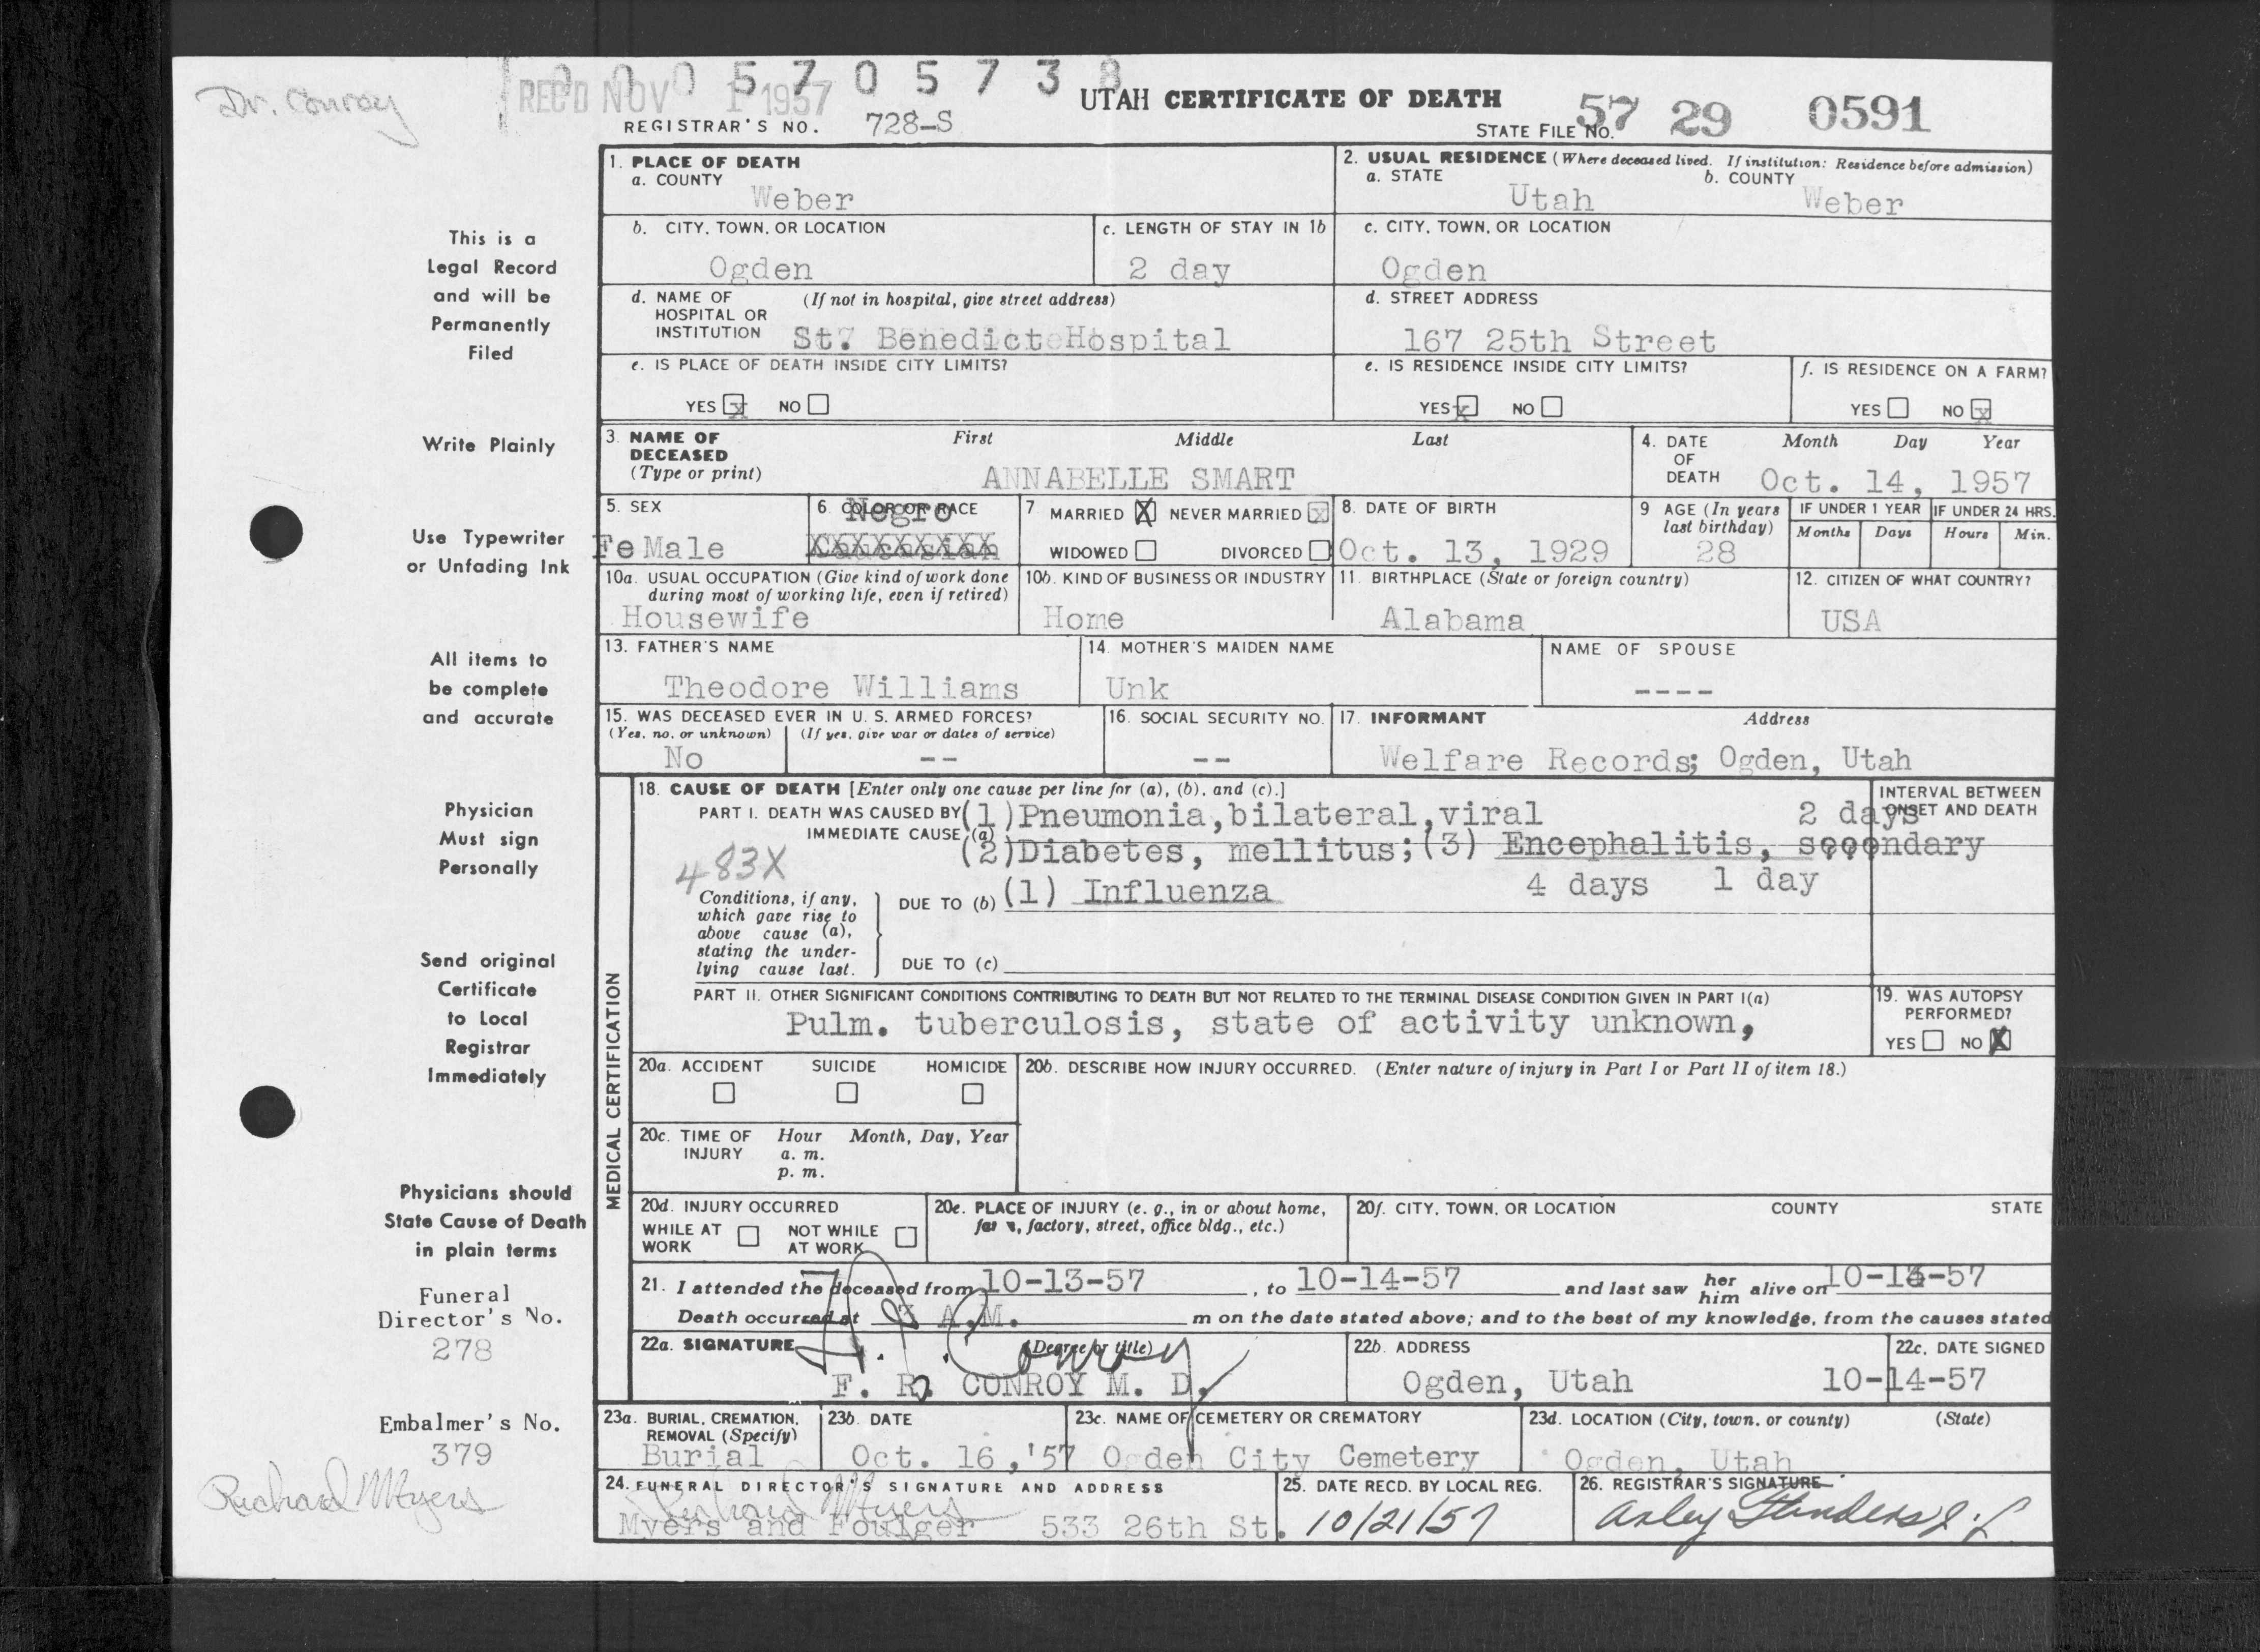 Dr. Conroy
0 0 0 5 7 0 5 7 3 8
REC'D NOV 1 1957
UTAH CERTIFICATE OF DEATH
REGISTRAR'S NO. 728-S
STATE FILE NO. 57 29 0591
This is a
Legal Record
and will be
Permanently
Filed
Write Plainly
Use Typewriter
or Unfading Ink
All items to
be complete
and accurate
Physician
Must sign
Personally
Send original
Certificate
to Local
Registrar
Immediately
Physicians should
State Cause of Death
in plain terms
Funeral
Director's No.
278
Embalmer's No.
379
Richard Myers
1. PLACE OF DEATH
a. COUNTY
Weber
2. USUAL RESIDENCE (Where deceased lived. If institution: Residence before admission)
a. STATE b. COUNTY
Utah Weber
b. CITY, TOWN, OR LOCATION
Ogden
c. LENGTH OF STAY IN 1b
2 day
c. CITY, TOWN, OR LOCATION
Ogden
d. NAME OF (If not in hospital, give street address)
HOSPITAL OR
INSTITUTION St. Benedict Hospital
d. STREET ADDRESS
167 25th Street
e. IS PLACE OF DEATH INSIDE CITY LIMITS?
YES x NO
e. IS RESIDENCE INSIDE CITY LIMITS?
YES x NO
f. IS RESIDENCE ON A FARM?
YES NO x
3. NAME OF First Middle Last
DECEASED
(Type or print) ANNABELLE SMART
4. DATE Month Day Year
OF
DEATH Oct. 14, 1957
5. SEX
FeMale
6. COLOR OR RACE
Negro
Caucasian
7 MARRIED X NEVER MARRIED x
WIDOWED DIVORCED
8. DATE OF BIRTH
Oct. 13, 1929
9 AGE (In years
last birthday)
28
IF UNDER 1 YEAR
Months Days
IF UNDER 24 HRS.
Hours Min.
10a. USUAL OCCUPATION (Give kind of work done
during most of working life, even if retired)
Housewife
10b. KIND OF BUSINESS OR INDUSTRY
Home
11. BIRTHPLACE (State or foreign country)
Alabama
12. CITIZEN OF WHAT COUNTRY?
USA
13. FATHER'S NAME
Theodore Williams
14. MOTHER'S MAIDEN NAME
Unk
NAME OF SPOUSE
----
15. WAS DECEASED EVER IN U. S. ARMED FORCES?
(Yes, no, or unknown) (If yes, give war or dates of service)
No --
16. SOCIAL SECURITY NO.
--
17. INFORMANT Address
Welfare Records; Ogden, Utah
MEDICAL CERTIFICATION
18. CAUSE OF DEATH [Enter only one cause per line for (a), (b), and (c).]
INTERVAL BETWEEN
ONSET AND DEATH
PART I. DEATH WAS CAUSED BY (1)Pneumonia,bilateral,viral 2 days
IMMEDIATE CAUSE (a)
(2)Diabetes, mellitus;(3) Encephalitis, secondary
483X
Conditions, if any,
which gave rise to
above cause (a),
stating the under-
lying cause last.
DUE TO (b) (1) Influenza 4 days 1 day
DUE TO (c)
PART II. OTHER SIGNIFICANT CONDITIONS CONTRIBUTING TO DEATH BUT NOT RELATED TO THE TERMINAL DISEASE CONDITION GIVEN IN PART I(a)
Pulm. tuberculosis, state of activity unknown,
19. WAS AUTOPSY
PERFORMED?
YES NO X
20a. ACCIDENT SUICIDE HOMICIDE
20b. DESCRIBE HOW INJURY OCCURRED. (Enter nature of injury in Part I or Part II of item 18.)
20c. TIME OF Hour Month, Day, Year
INJURY a. m.
p. m.
20d. INJURY OCCURRED
WHILE AT NOT WHILE
WORK AT WORK
20e. PLACE OF INJURY (e. g., in or about home,
farm, factory, street, office bldg., etc.)
20f. CITY, TOWN, OR LOCATION COUNTY STATE
21. I attended the deceased from 10-13-57, to 10-14-57 and last saw her him alive on 10-13-57
Death occurred at 3 A.M. m on the date stated above; and to the best of my knowledge, from the causes stated
22a. SIGNATURE (Degree or title)
F. R. Conroy
F. R. CONROY M. D.
22b. ADDRESS
Ogden, Utah
22c. DATE SIGNED
10-14-57
23a. BURIAL, CREMATION,
REMOVAL (Specify)
Burial
23b. DATE
Oct. 16,'57
23c. NAME OF CEMETERY OR CREMATORY
Ogden City Cemetery
23d. LOCATION (City, town, or county) (State)
Ogden, Utah
24. FUNERAL DIRECTOR'S SIGNATURE AND ADDRESS
Richard Myers
Myers and Foulger 533 26th St.
25. DATE RECD. BY LOCAL REG.
10/21/57
26. REGISTRAR'S SIGNATURE